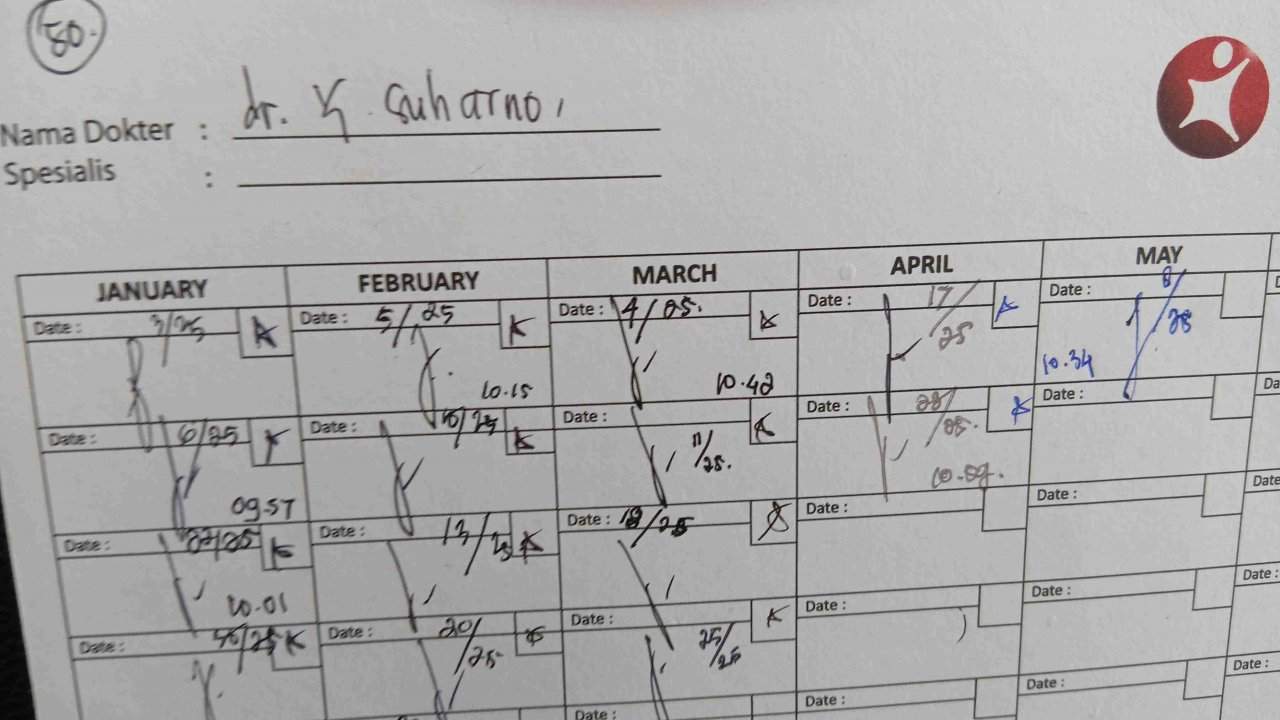 50.
Nama Dokter : dr. K. Suharno,
Spesialis :
JANUARY FEBRUARY MARCH APRIL MAY
Date : 3/25 Date : 5/25 K Date : 4/25. K Date : 17/25 Date : 8/25
10.15 10.42 10.34
Date : 6/25 Date : Date : 11/25. K Date : 28/25. Date :
09.57 10.09.
Date : 22/25 K Date : 13/25 K Date : 18/25 Date : Date : Date
10.01
Date : K Date : 20/25 Date : 25/25 K Date : Date : Date :
Date : Date : Date : Date :